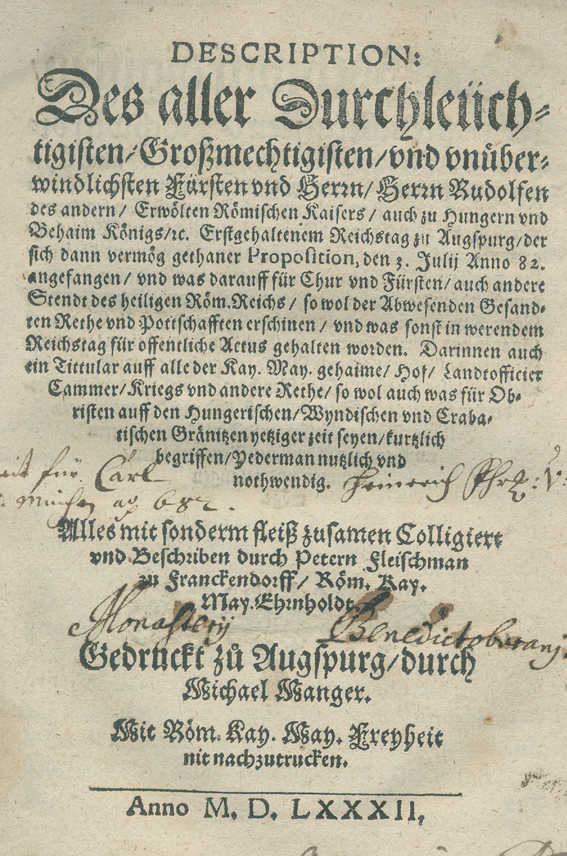 DESCRIPTION:
Des aller Durchleüch-
tigisten/Großmechtigisten/vnd vnüber-
windlichsten Fürsten vnd Herrn/ Herrn Rudolfen
des andern/ Erwölten Römischen Kaisers/ auch zu Hungern vnd
Behaim Königs/ꝛc. Erstgehaltenem Reichstag zu Augspurg/der
sich dann vermög gethaner Proposition, den 3. Julij Anno 82.
angefangen/ vnd was darauff für Chur vnd Fürsten/ auch andere
Stendt des heiligen Röm.Reichs/ so wol der Abwesenden Gesand-
ten Rethe vnd Pottschafften erschinen/ vnd was sonst in werendem
Reichstag für offentliche Actus gehalten worden. Darinnen auch
ein Tittular auff alle der Kay. May. gehaime/ Hof/ Landtofficier
Cammer/Kriegs vnd andere Rethe/ so wol auch was für Ob-
risten auff den Hungerischen/Wyndischen vnd Craba-
tischen Gränitzen yetziger zeit seyen/kurtzlich
begriffen/Yederman nutzlich vnd
nothwendig.
für Carl
Heinrich
Alles mit sonderm fleiß zusamen Colligiert
vnd Beschriben durch Petern Fleischman
zu Franckendorff/ Röm. Kay.
May.Ehrnholdt.
Monasterij Benedictoburanj
Gedruckt zů Augspurg/durch
Michael Manger.
Mit Röm. Kay. May. Freyheit
nit nachzutrucken.
Anno M. D. LXXXII.